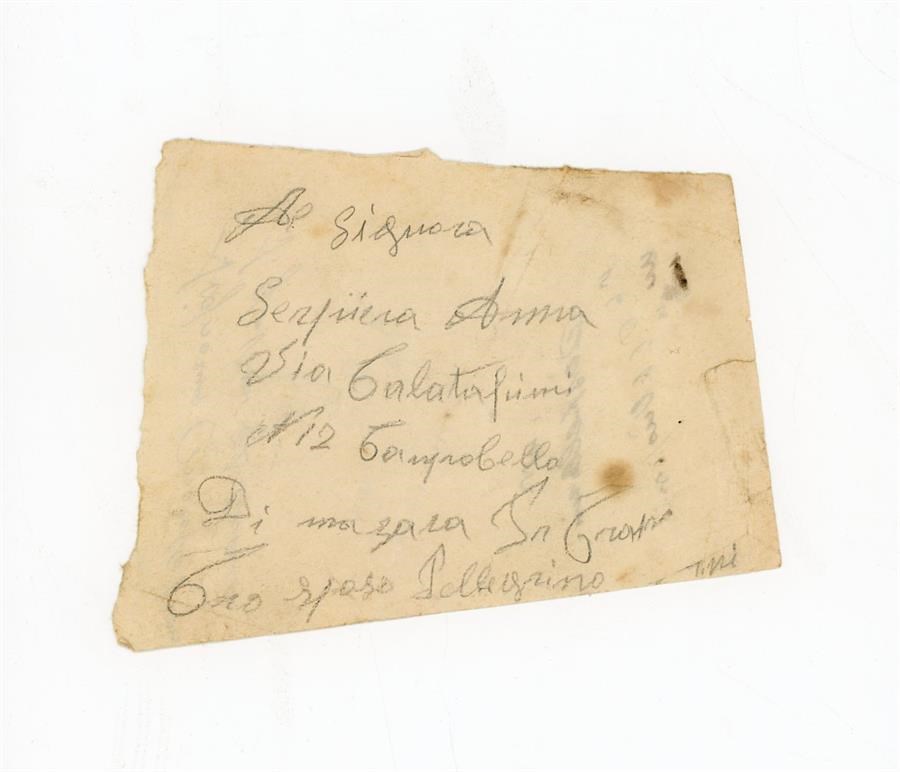 Al Signora
Serpüera Anna
Via Calatafimi
N 12 Campobello
Di mazara Pr Trapa
Tuo sposo Pellegrino